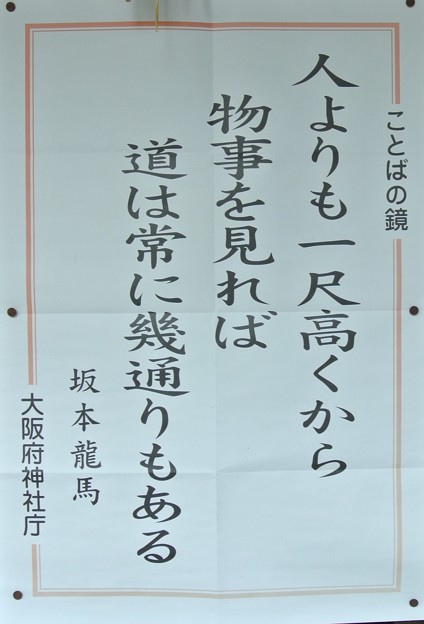 ことばの鏡
人よりも一尺高くから
物事を見れば
道は常に幾通りもある
坂本龍馬
大阪府神社庁